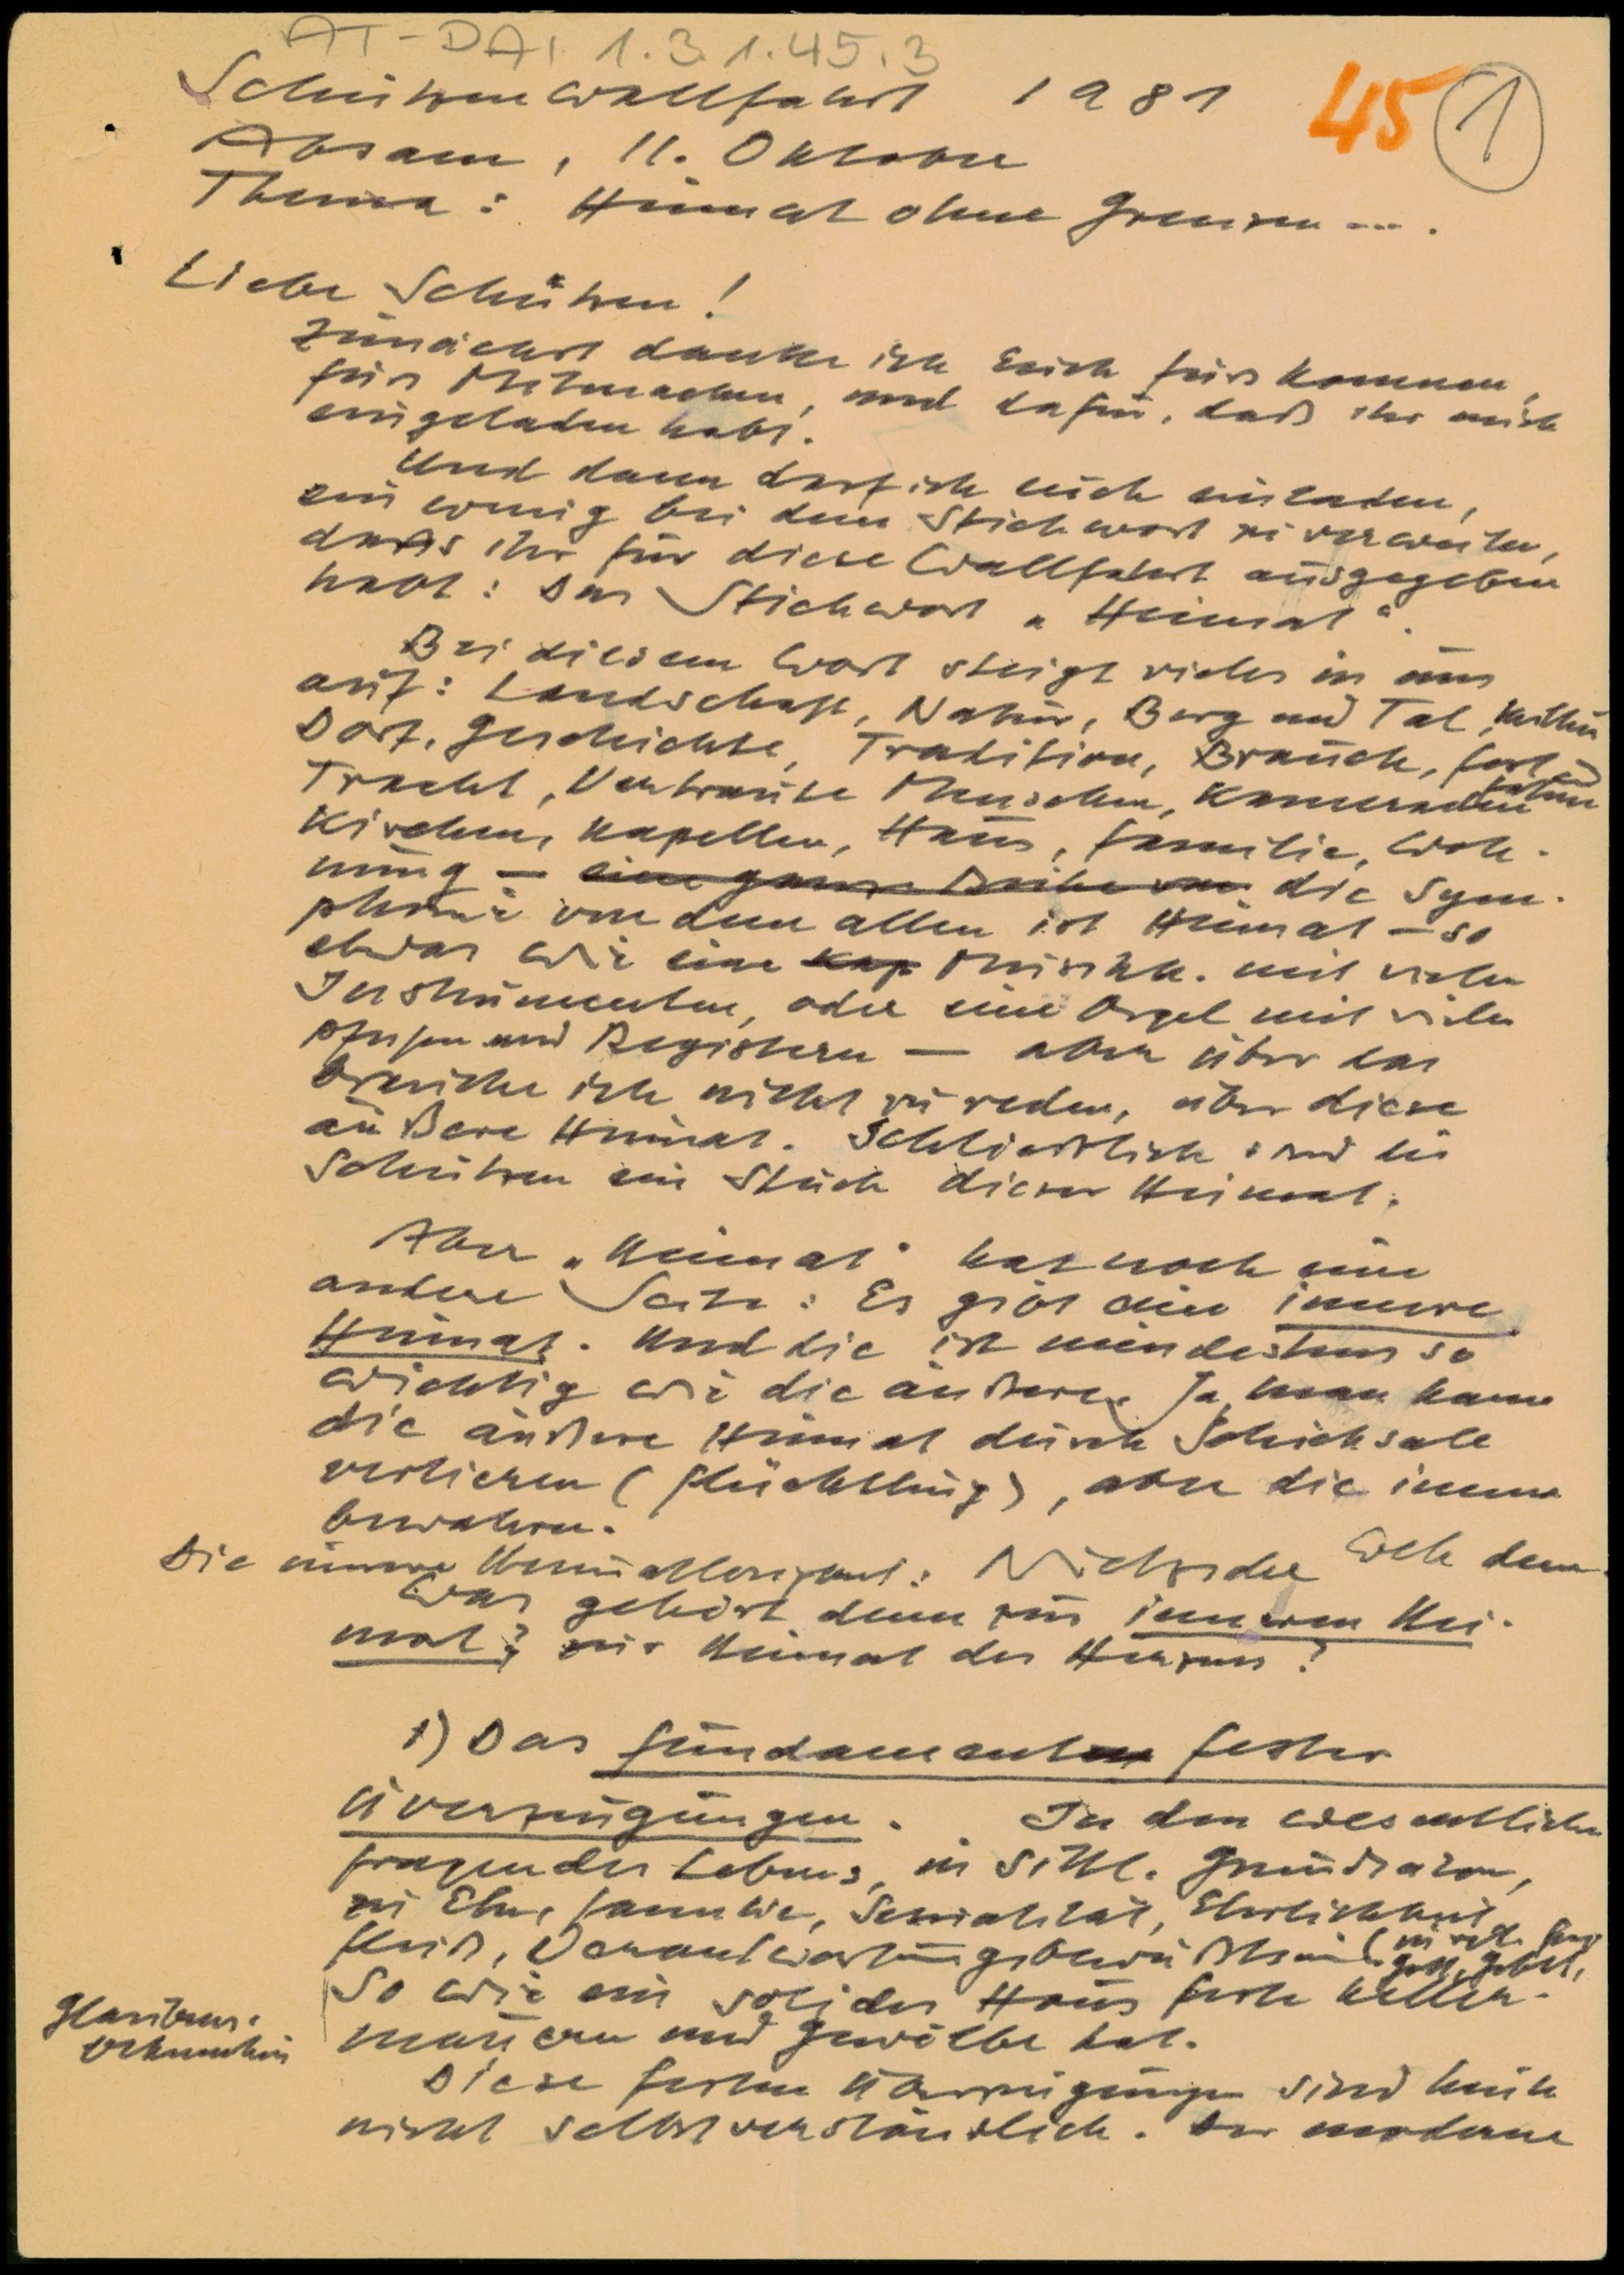 AT-DAI 1.3.1.45.3
Schützenwallfahrt 1981
45 1
Absam, 11. Oktober
Thema: Heimat ohne Grenzen ....
Liebe Schützen!
Zunächst danke ich Euch fürs Kommen,
fürs Mitmachen, und dafür, daß ihr mich
eingeladen habt.
Und dann darf ich euch einladen,
ein wenig bei dem Stichwort zu verweilen,
das ihr für diese Wallfahrt ausgegeben
habt: Das Stichwort „Heimat".
Bei diesem Wort steigt vieles in uns
auf: Landschaft, Natur, Berg und Tal, Kultur
Dorf, Geschichte, Tradition, Brauch, Fest
Tracht, Vertraute Menschen, Kameraden Fahne
Kirchen, Kapellen, Haus, Familie, Woh-
nung — eine ganze Reihe von die Sym-
phonie von dem allen ist Heimat — so
etwas wie eine Kap Musikk. mit vielen
Instrumenten, oder eine Orgel mit vielen
Pfeifen und Registern — aber über das
brauche ich nicht zu reden, über diese
äußere Heimat. Schließlich sind die
Schützen ein Stück dieser Heimat.
Aber „Heimat" hat noch eine
andere Seite: Es gibt eine innere
Heimat. Und die ist mindestens so
wichtig wie die äußere. Ja, man kann
die äußere Heimat durch Schicksale
verlieren (Flüchtling), aber die innere
bewahren.
Die innere Heimatlosigkeit: Nietzsche Weh dem
Was gehört denn zur inneren Hei-
mat? zur Heimat des Herzens?
1) Das Fundament fester
Überzeugungen. In den wesentlichen
Fragen des Lebens, in sittl. Grundsätzen,
in Ehe, Familie, Sexualität, Ehrlichkeit
Fleiß, Verantwortungsbewußtsein (in rel.
Gott, Gebet,
So wie ein solides Haus feste Keller-
mauern und Gewölbe hat.
Glaubens-
bekenntnis
Diese festen Überzeugungen sind heute
nicht selbstverständlich. Der moderne